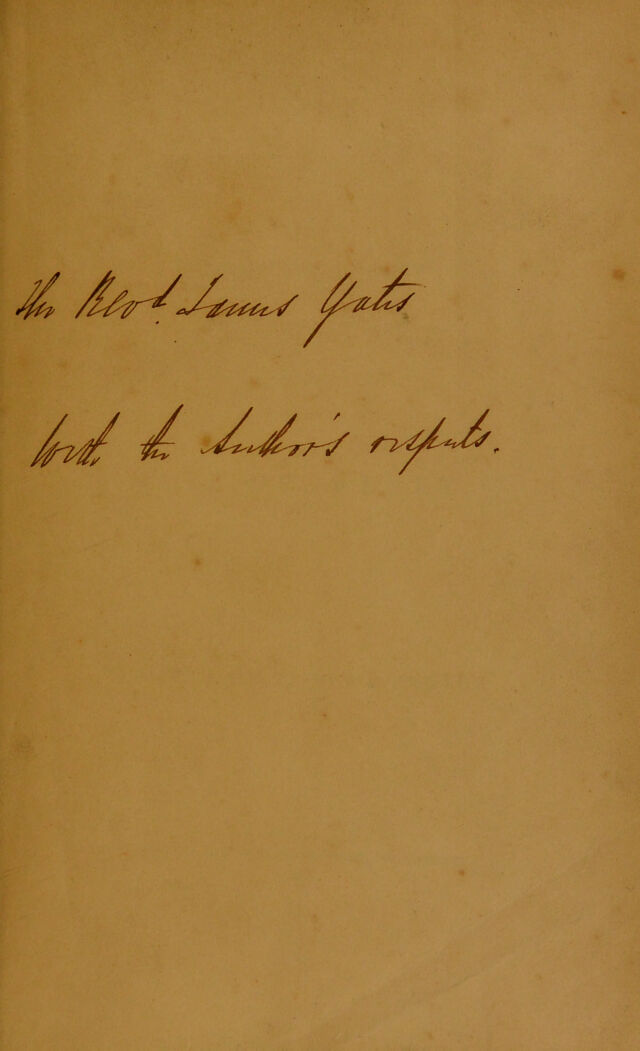 The Revd. James Yates
With the Author's respects.